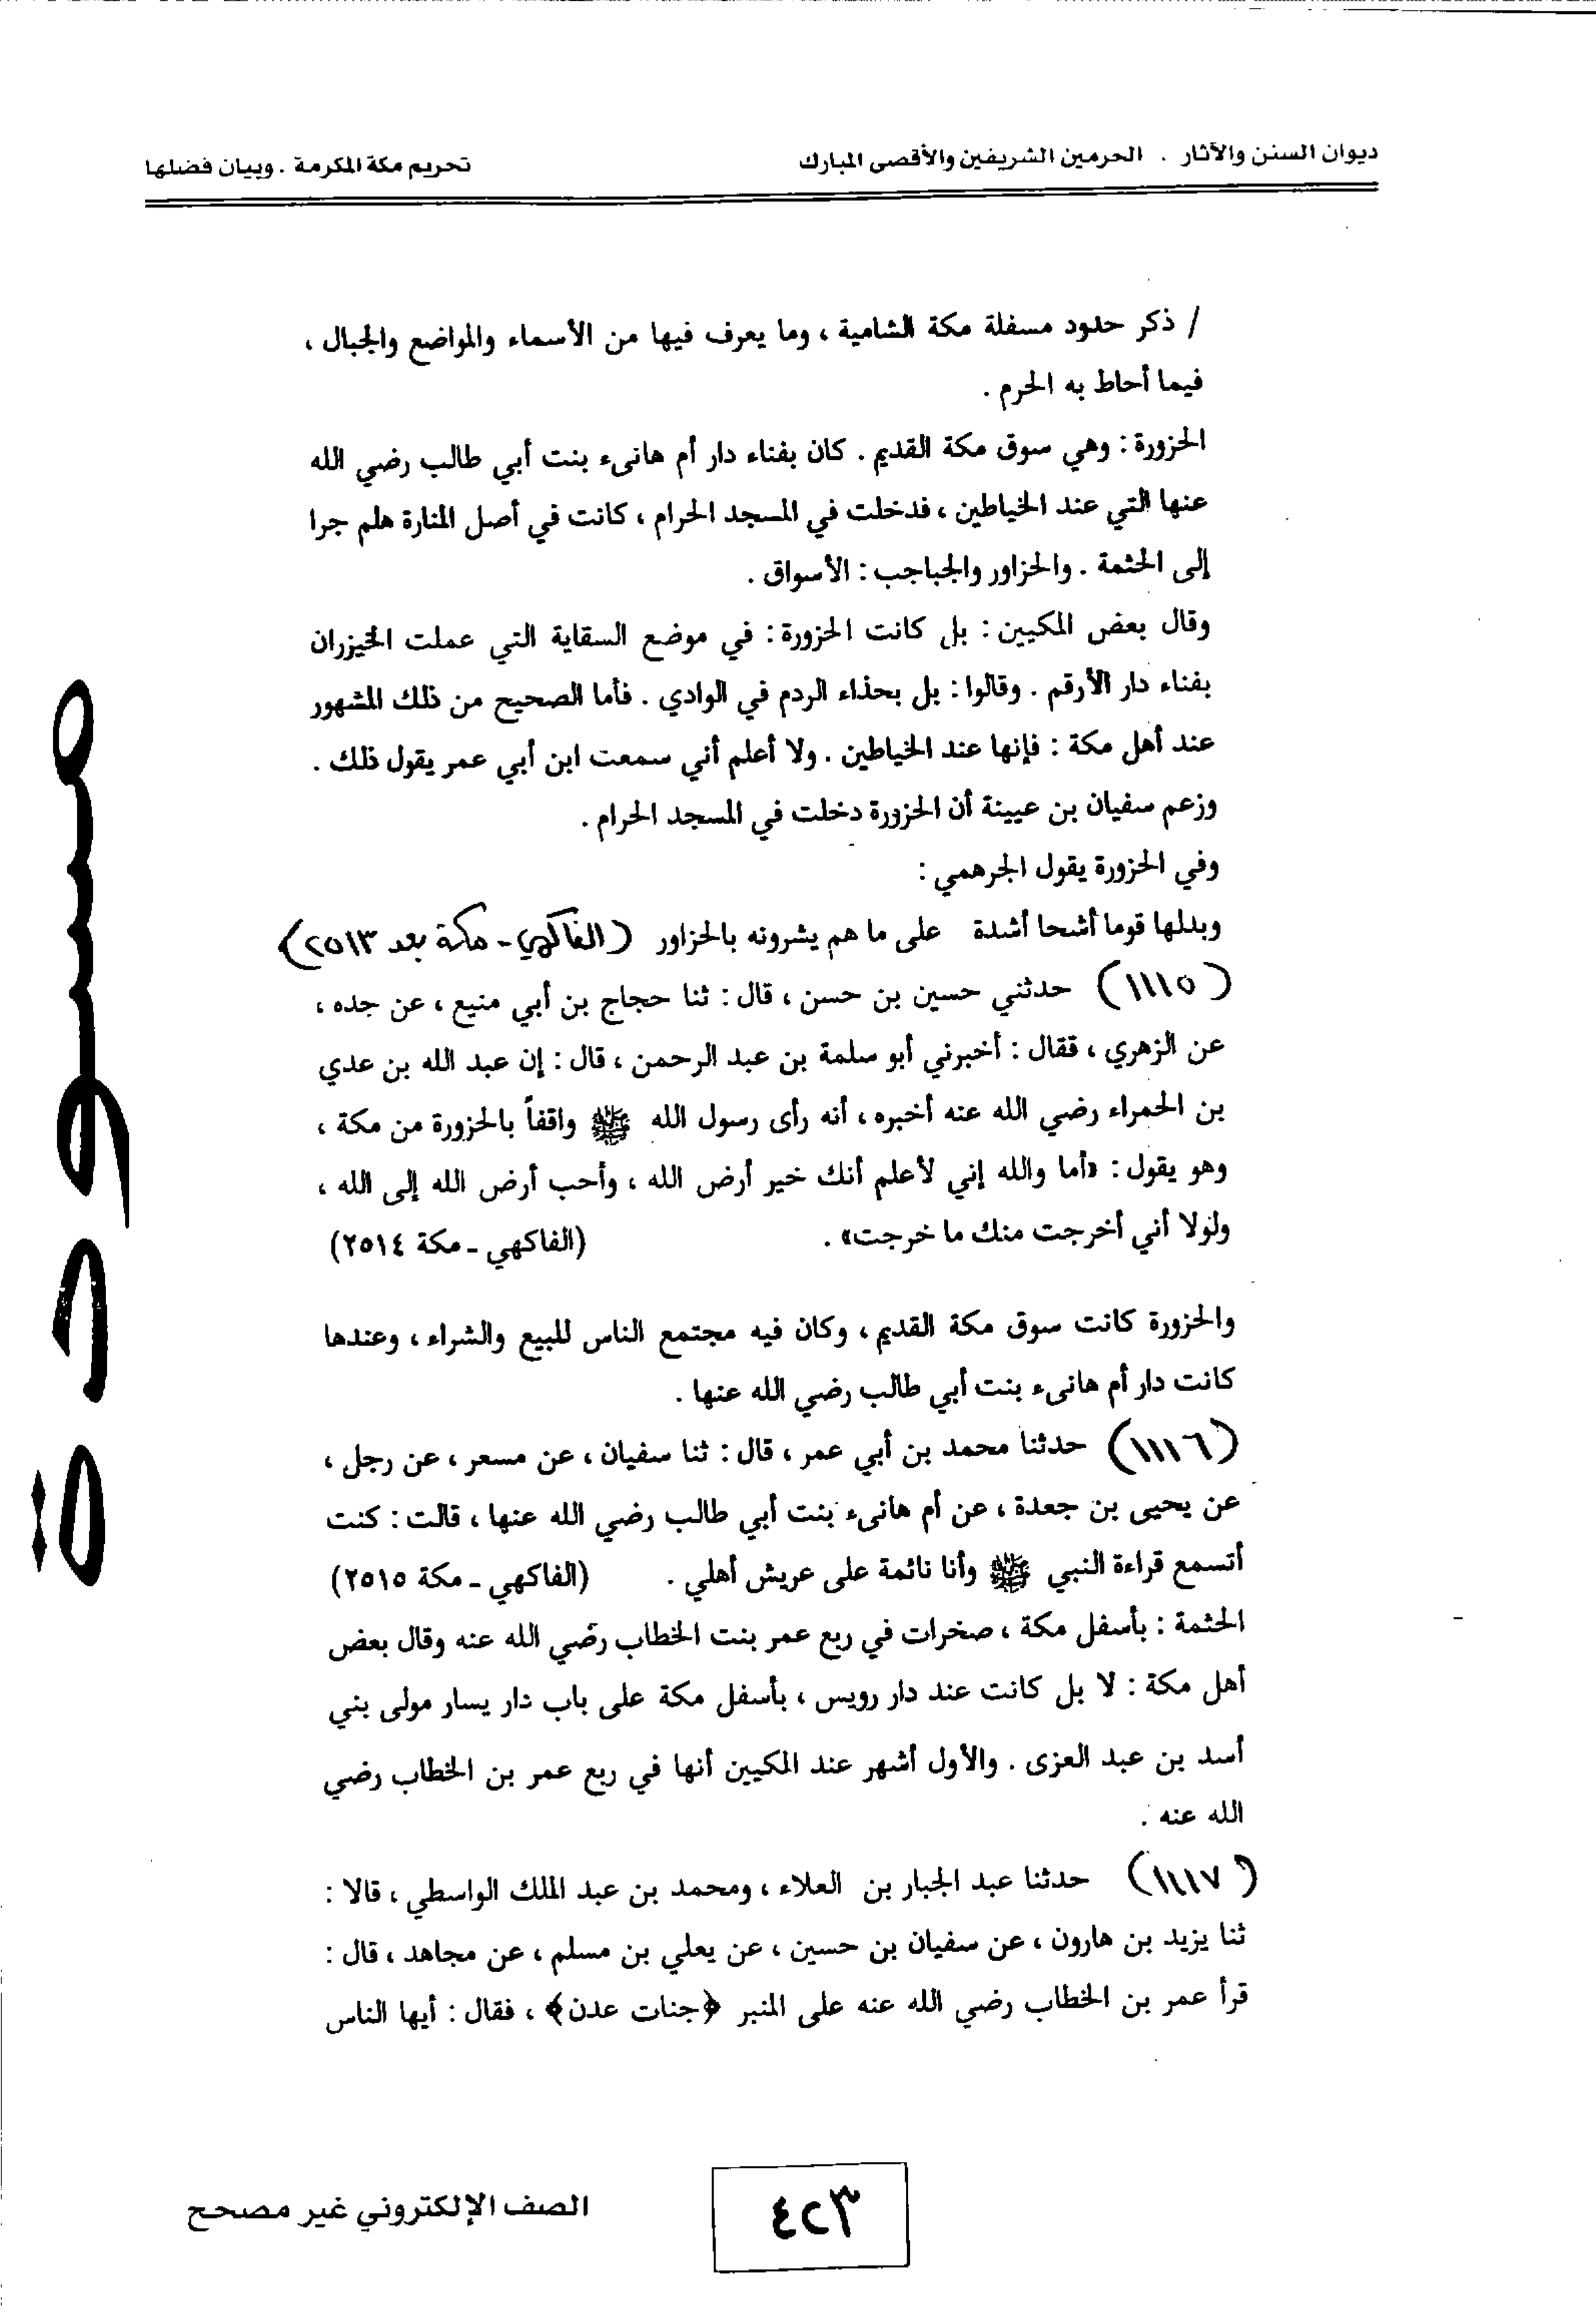 ديوان السنن والآثار . الحرمين الشريفين والأقصى المبارك
تحريم مكة المكرمة . وبيان فضلها
/ ذكر حدود مسفلة مكة الشامية ، وما يعرف فيها من الأسماء والمواضع والجبال ،
فيما أحاط به الحرم .
الحزورة : وهي سوق مكة القديم . كان بفناء دار أم هانىء بنت أبي طالب رضي الله
عنها التي عند الخياطين ، فدخلت في المسجد الحرام ، كانت في أصل المنارة هلم جرا
إلى الحثمة . والحزاور والجباجب : الأسواق .
وقال بعض المكيين : بل كانت الحزورة : في موضع السقاية التي عملت الخيزران
بفناء دار الأرقم . وقالوا : بل بحذاء الردم في الوادي . فأما الصحيح من ذلك المشهور
عند أهل مكة : فإنها عند الخياطين . ولا أعلم أني سمعت ابن أبي عمر يقول ذلك .
وزعم سفيان بن عيينة أن الحزورة دخلت في المسجد الحرام .
وفي الحزورة يقول الجرهمي :
وبدلها قوما أشحا أشدة على ما هم يشرونه بالحزاور (الفاكهي - مكة بعد ٢٥١٣)
(١١١٥) حدثني حسين بن حسن ، قال : ثنا حجاج بن أبي منيع ، عن جده ،
عن الزهري ، فقال : أخبرني أبو سلمة بن عبد الرحمن ، قال : إن عبد الله بن عدي
بن الحمراء رضي الله عنه أخبره ، أنه رأى رسول الله ﷺ واقفاً بالحزورة من مكة ،
وهو يقول : «أما والله إني لأعلم أنك خير أرض الله ، وأحب أرض الله إلى الله ،
ولولا أني أخرجت منك ما خرجت» . (الفاكهي - مكة ٢٥١٤)
والحزورة كانت سوق مكة القديم ، وكان فيه مجتمع الناس للبيع والشراء ، وعندها
كانت دار أم هانىء بنت أبي طالب رضي الله عنها .
(١١١٦) حدثنا محمد بن أبي عمر ، قال : ثنا سفيان ، عن مسعر ، عن رجل ،
عن يحيى بن جعدة ، عن أم هانىء بنت أبي طالب رضي الله عنها ، قالت : كنت
أتسمع قراءة النبي ﷺ وأنا نائمة على عريش أهلي . (الفاكهي - مكة ٢٥١٥)
الحثمة : بأسفل مكة ، صخرات في ربع عمر بنت الخطاب رضي الله عنه وقال بعض
أهل مكة : لا بل كانت عند دار رويس ، بأسفل مكة على باب دار يسار مولى بني
أسد بن عبد العزى . والأول أشهر عند المكيين أنها في ربع عمر بن الخطاب رضي
الله عنه .
(١١١٧) حدثنا عبد الجبار بن العلاء ، ومحمد بن عبد الملك الواسطي ، قالا :
ثنا يزيد بن هارون ، عن سفيان بن حسين ، عن يعلي بن مسلم ، عن مجاهد ، قال :
قرأ عمر بن الخطاب رضي الله عنه على المنبر ﴿جنات عدن﴾ ، فقال : أيها الناس
مسودة
٤٢٣
الصف الإلكتروني غير مصحح